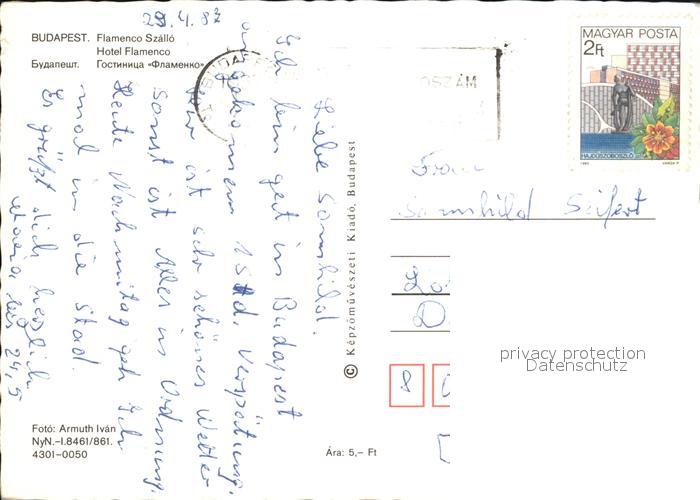 29.4.87
BUDAPEST. Flamenco Szálló
Hotel Flamenco
Будапешт. Гостиница «Фламенко»
Liebe Sarnhild.
Ich bin gut in Budapest
angekommen 1 Std. Verspätung.
hier ist sehr schönes Wetter
sonst ist Alles in Ordnung.
Heute Nachmittag geh Ich
mal in die Stad.
Es grüßt dich herzlich
bis 24,5
Fotó: Armuth Iván
NyN.–I.8461/861.
4301–0050
Ára: 5,– Ft
© Képzőművészeti Kiadó, Budapest
BUDAPEST
OSZÁM
MAGYAR POSTA
2Ft
HAJDÚSZOBOSZLÓ
1983
VARGA P.
Frau
Sarnhild Seifert
Lo
D
8
privacy protection
Datenschutz